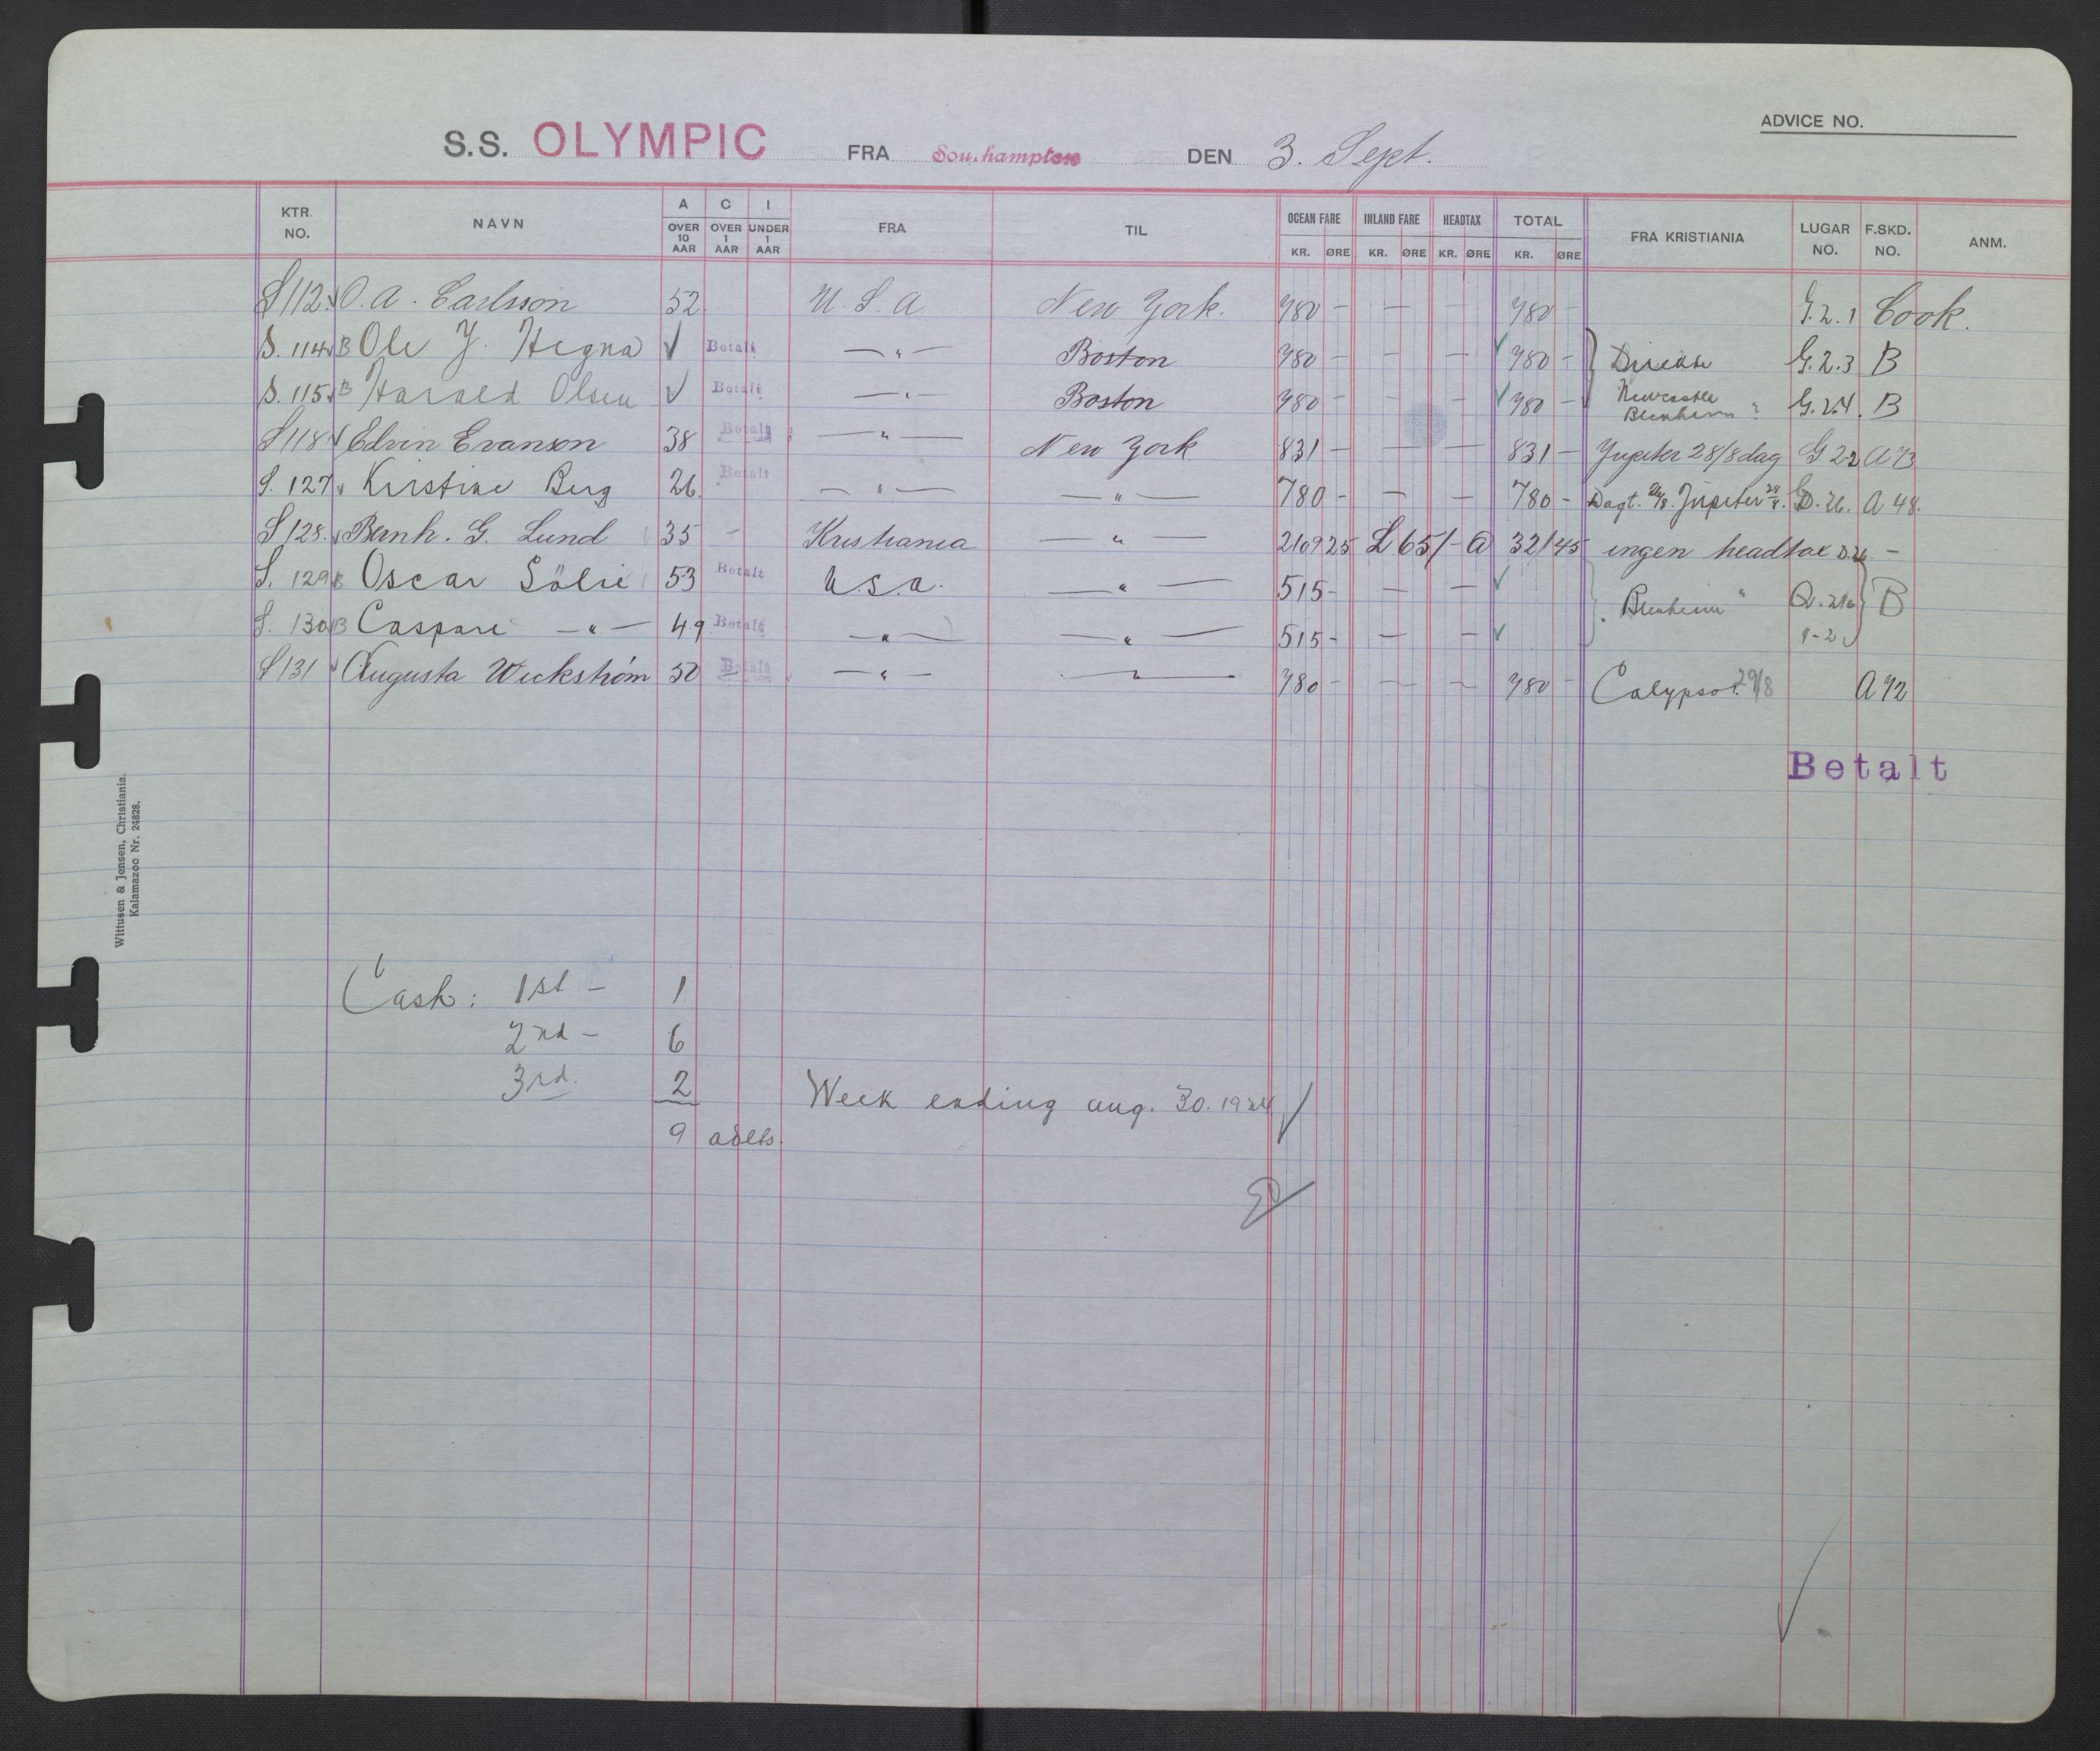 ADVICE NO.
S.S. OLYMPIC FRA Southampton DEN 3. Sept.
KTR. NO. NAVN A OVER 10 AAR C OVER 1 AAR I UNDER 1 AAR FRA TIL OCEAN FARE KR. ØRE INLAND FARE KR. ØRE HEADTAX KR. ØRE TOTAL KR. ØRE FRA KRISTIANIA LUGAR NO. F.SKD. NO. ANM.
S112 O. A. Carlsson 52 U.S.A New York. 780 - - - 780 - G.2.1 Cook.
S. 114 B Ole J. Hegna √ Betalt - " - Boston 780 - - - √ 780 - G.2.3 B
S. 115 B Harald Olsen √ Betalt - " - Boston 780 - - - √ 780 - Newcastle Blenheim ? G.2.4. B
S118 √ Edvin Evanson 38 Betalt - " - New York 831 - - - 831 - Jupiter 28/8 dag G 22 A73
S. 127 √ Kirstine Berg 26. Betalt - " - - " - 780 - - - 780 - Dagt. Jupiter A 48.
S128. √ Bernh. G. Lund 35 - Kristiania - " - 2109 25 L 65/- a 32/45 ingen headtax -
S. 129 B Oscar Sölie 53 Betalt U.S.A. - " - 515 - - - √ Blenheim " B
S. 130 B Caspari - " - 49 Betalt - " - - " - 515 - - - √ 1-2
S131 √ Augusta Wickström 50 Betalt - " - - " - 780 - - - 780 - Calypso 29/8 A72
Betalt
Wittusen & Jensen, Christiania.
Kalamazoo Nr. 24828.
Cash: 1st - 1
2nd - 6
3rd. 2
Week ending aug. 30. 1924 √
9 adlts.